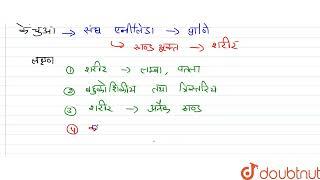 केंचुआ → संघ एनीलिडा → प्राणी
↳ खण्ड युक्त → शरीर
लक्षण
① शरीर → लम्बा, पतला
② बहुकोशिकीय तथा त्रिस्तरीय
③ शरीर → अनेक खण्ड
④
doubtnut